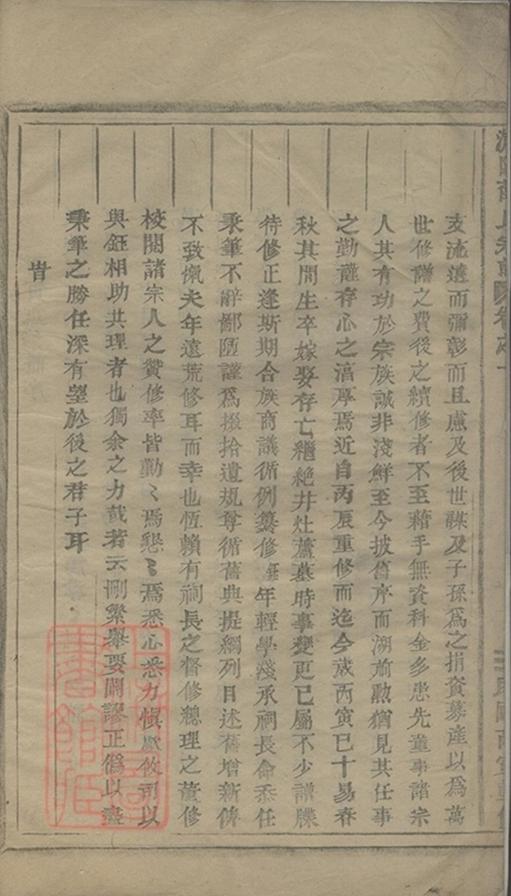 支流遠而彌彰而且慮及後世謀及子孫爲之捐資募產以爲萬
世修譜之費後之續修者不至藉手無資科金多患先董事諸宗
人其有功於宗族誠非淺鮮至今披舊序而溯前勲猶見其任事
之勤謹存心之濇厚焉近自丙辰重修而迄今歲丙寅已十易春
秋其間生卒嫁娶存亡繼絶井灶蘆墓時事變更已屬不少譜牒
待修正逢斯期合族商議循例纂修 年輕學淺承祠長命忝任
秉筆不辭鄙陋謹爲掇拾遺規尊循舊典提綱列目述舊增新俾
不致慨夫年遠荒修耳而幸也恆賴有祠長之督修總理之董修
校閱諸宗人之贊修率皆勤〻焉懇〻焉悉心悉力慎 攸司以
與鈺相助共理者也獨余之力哉若云刪繁舉要闢謬正僞以盡
秉筆之勝任深有望於後之君子耳
旹